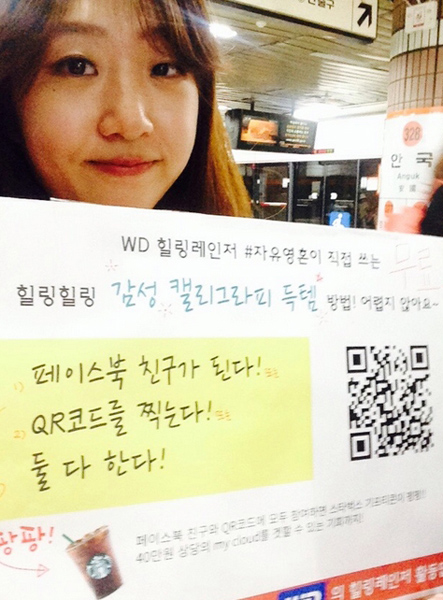 328
안국
Anguk
安國
WD 힐링레인저 #자유영혼이 직접 쓰는 무료
힐링힐링 감성 캘리그라피 득템 방법! 어렵지 않아요~
1) 페이스북 친구가 된다! 또는
2) QR코드를 찍는다! 또는
둘 다 한다!
팡팡!
페이스북 친구와 QR코드에 모두 참여하면 스타벅스 기프티콘이 팡팡!!
40만원 상당의 my cloud를 겟할 수 있는 기회까지!
의 힐링레인저 활동